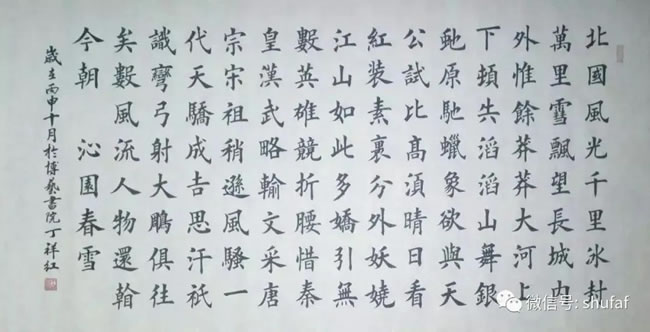 北國風光千里冰封
萬里雪飄望長城内
外惟餘莽莽大河上
下頓失滔滔山舞銀
虵原馳蠟象欲與天
公試比高須晴日看
紅装素裹分外妖嬈
江山如此多嬌引無
數英雄競折腰惜秦
皇漢武略輸文采唐
宗宋祖稍遜風騷一
代天驕成吉思汗祇
識彎弓射大鵰俱往
矣數風流人物還翰
今朝 沁園春雪
歲在丙申十月於博藝書院丁祥紅
微信号: shufaf